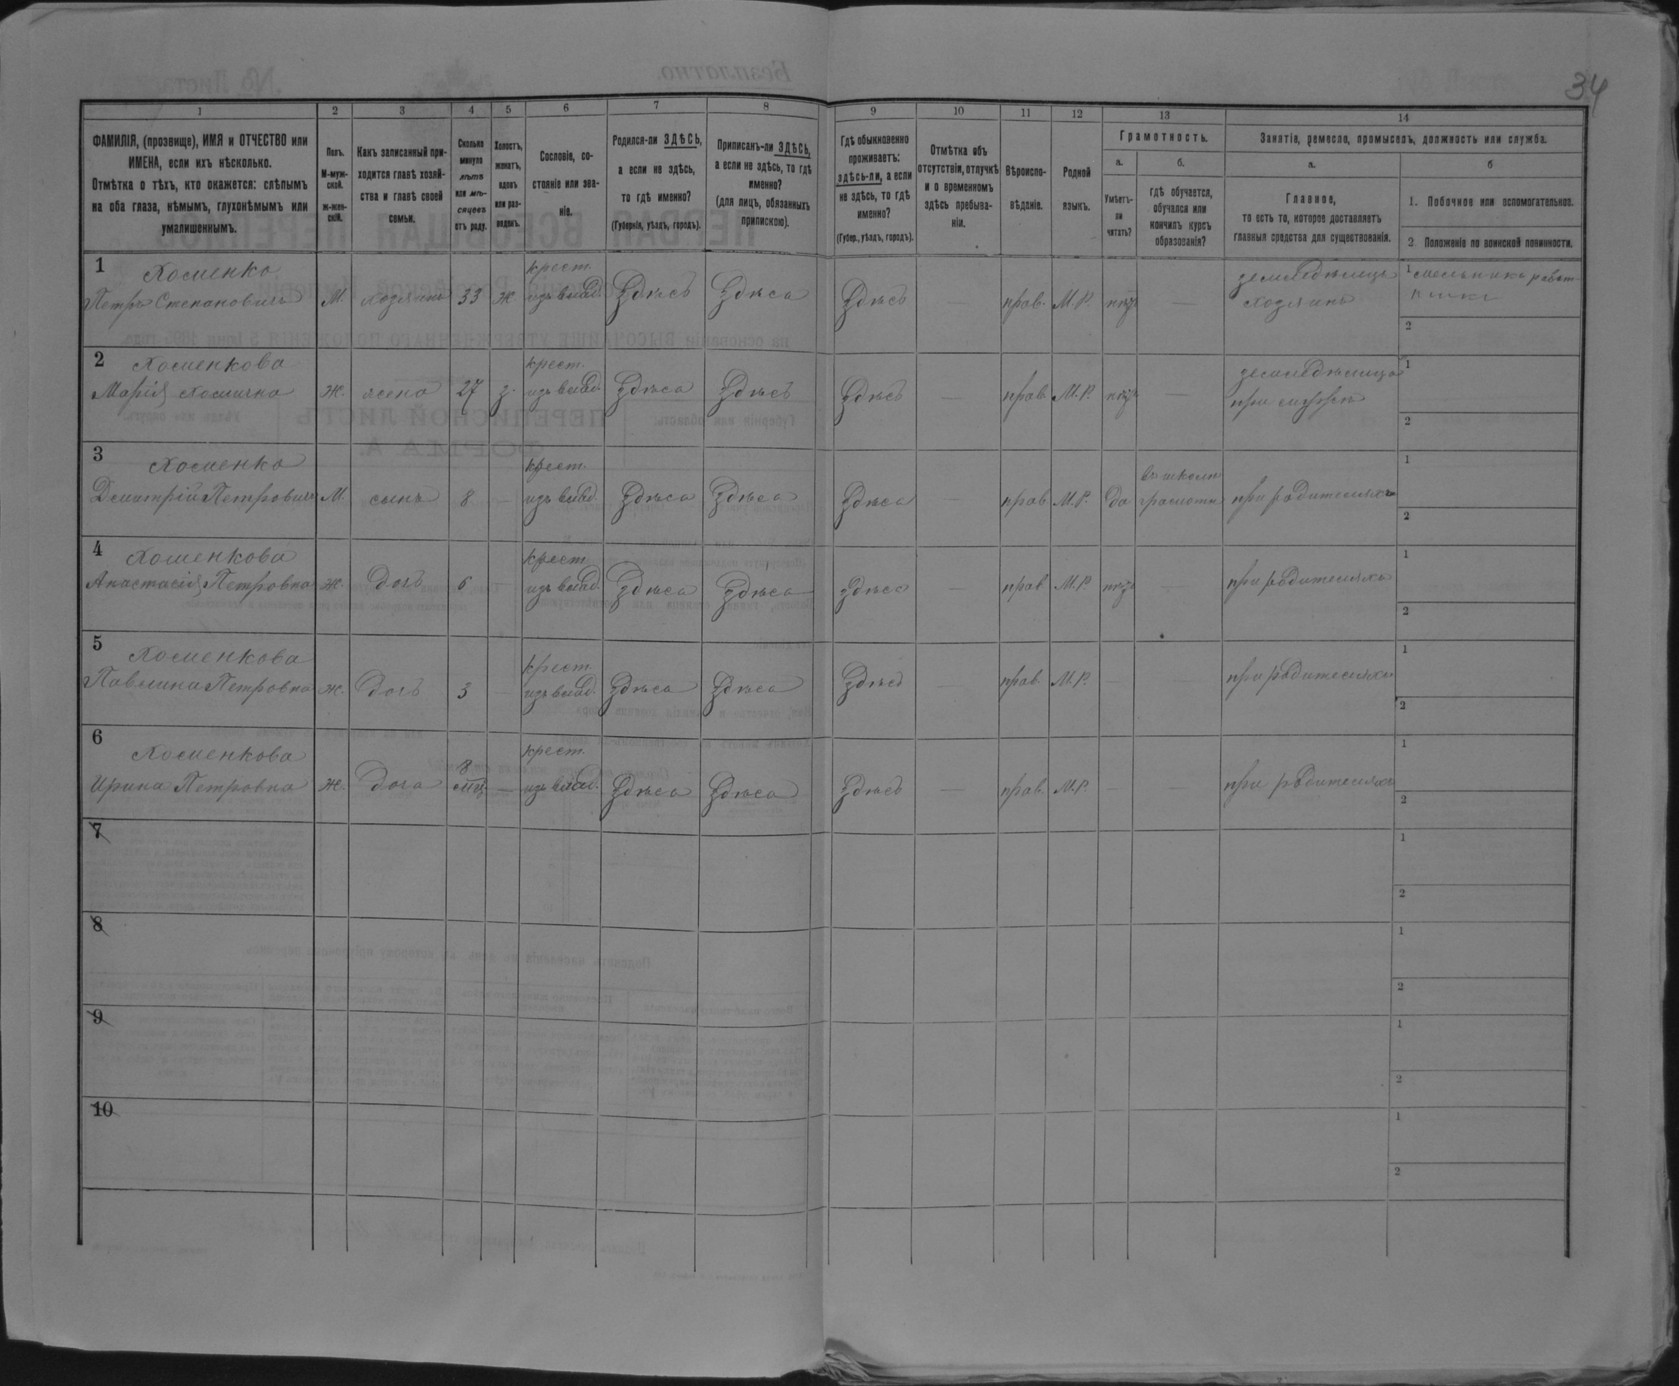 34
1 2 3 4 5 6 7 8 9 10 11 12 13 14
ФАМИЛІЯ, (прозвище), ИМЯ и ОТЧЕСТВО или
ИМЕНА, если ихъ нѣсколько.
Отмѣтка о тѣхъ, кто окажется: слѣпымъ
на оба глаза, нѣмымъ, глухонѣмымъ или
умалишеннымъ.
Полъ.
М-муж-
ской.
ж-жен-
скій.
Какъ записанный при-
ходится главѣ хозяй-
ства и главѣ своей
семьи.
Сколько
минуло
лѣтъ
или мѣ-
сяцевъ
отъ роду.
Холостъ,
женатъ,
вдовъ
или раз-
веденъ.
Сословіе, со-
стояніе или зва-
ніе.
Родился-ли ЗДѢСЬ,
а если не здѣсь,
то гдѣ именно?
(Губернія, уѣздъ, городъ).
Приписанъ-ли ЗДѢСЬ,
а если не здѣсь, то гдѣ
именно?
(для лицъ, обязанныхъ
припискою).
Гдѣ обыкновенно
проживаетъ:
здѣсь-ли, а если
не здѣсь, то гдѣ
именно?
(Губер., уѣздъ, городъ).
Отмѣтка объ
отсутствіи, отлучкѣ
и о временномъ
здѣсь пребыва-
ніи.
Вѣроиспо-
вѣданіе.
Родной
языкъ.
Грамотность.
а.
Умѣетъ-
ли
читать?
б.
гдѣ обучается,
обучался или
кончилъ курсъ
образованія?
Занятіе, ремесло, промыселъ, должность или служба.
а.
Главное,
то есть то, которое доставляетъ
главныя средства для существованія.
б
1. Побочное или вспомогательное.
2. Положеніе по воинской повинности.
1 Хоменко крест. земледѣлецъ 1
Петръ Степановичъ М. хозяинъ 33 ж. изъ влад. Здѣсь Здѣсь Здѣсь — прав. М.Р. нѣтъ — хозяинъ
2
2 Хоменкова крест. 1
Марія Хомична ж. жена 27 з. изъ влад. Здѣсь Здѣсь Здѣсь — прав. М.Р. нѣтъ — при мужѣ
2
3 Хоменко крест. въ школѣ 1
Дмитрій Петровичъ М. сынъ 8 — изъ влад. Здѣсь Здѣсь Здѣсь — прав М.Р. да грамоты при родителяхъ
2
4 Хоменкова крест. 1
Анастасія Петровна ж. дочь 6 изъ влад. Здѣсь Здѣсь Здѣсь — прав М.Р. нѣтъ — при родителяхъ
2
5 Хоменкова крест. 1
Павлина Петровна ж. дочь 3 — изъ влад. Здѣсь Здѣсь Здѣсь — прав. М.Р. — — при родителяхъ
2
6 Хоменкова крест. 1
Ирина Петровна ж. дочь мц. — изъ влад. Здѣсь Здѣсь Здѣсь — прав. М.Р. — — при родителяхъ
2
7 1
2
8 1
2
9 1
2
10 1
2